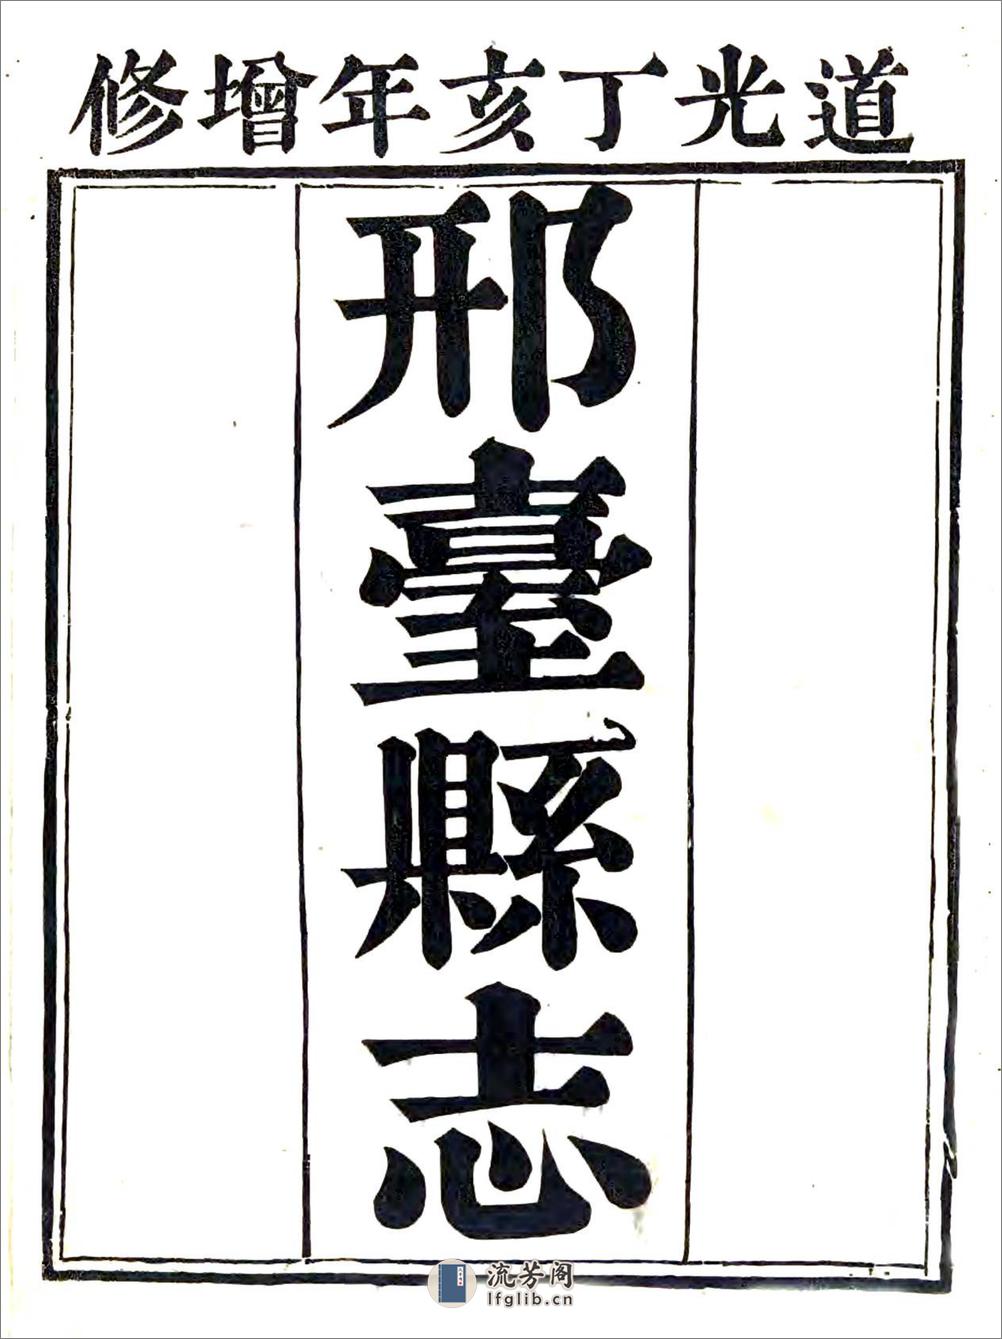 道光丁亥年增修
邢臺縣志
流芳阁
lfglib.cn